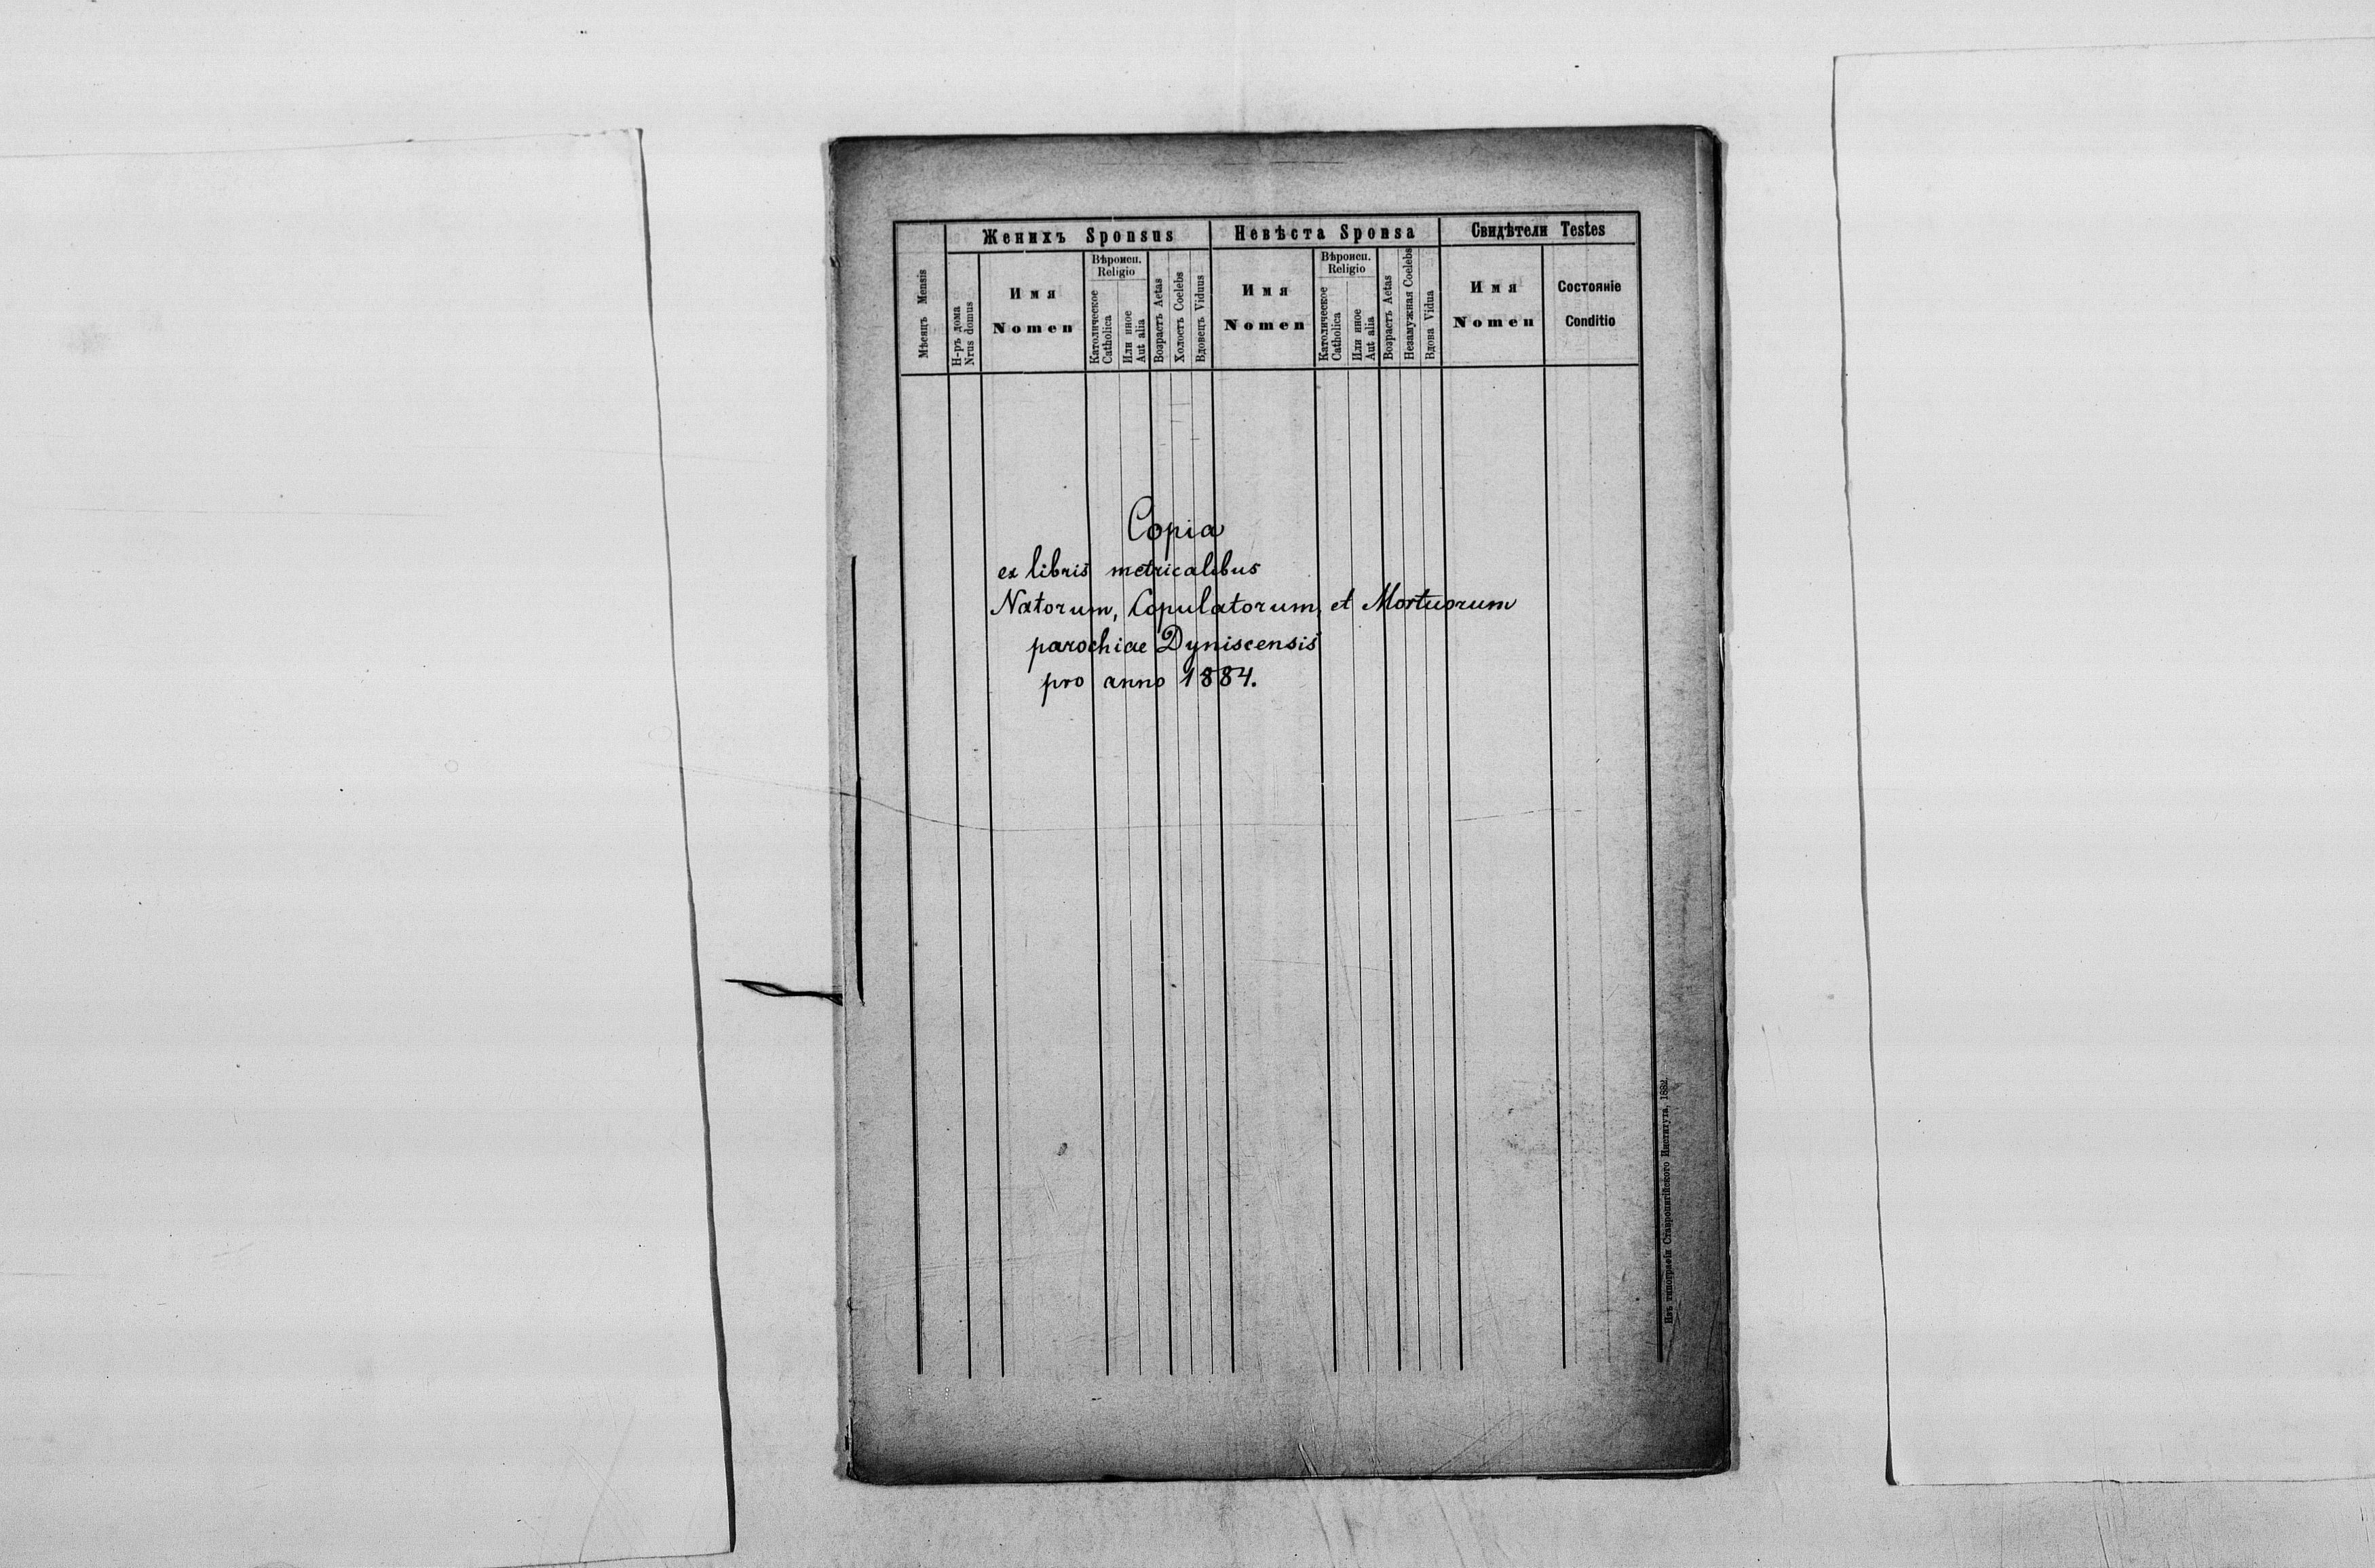 Женихъ Sponsus Невѣста Sponsa Свидѣтели Testes
Мѣсяцъ Mensis
Н-ръ дома
Nrus domus
Имя
Nomen
Вѣроисп.
Religio
Католическое
Catholica
Или иное
Aut alia
Возрастъ Aetas
Холостъ Coelebs
Вдовецъ Viduus
Имя
Nomen
Вѣроисп.
Religio
Католическое
Catholica
Или иное
Aut alia
Возрастъ Aetas
Незамужная Coelebs
Вдова Vidua
Имя
Nomen
Состояніе
Conditio
Copia
ex libris metricalibus
Natorum, Copulatorum, et Mortuorum
parochiae Dyniscensis
pro anno 1884.
Изъ типографіи Ставропигійского Института, 1882.